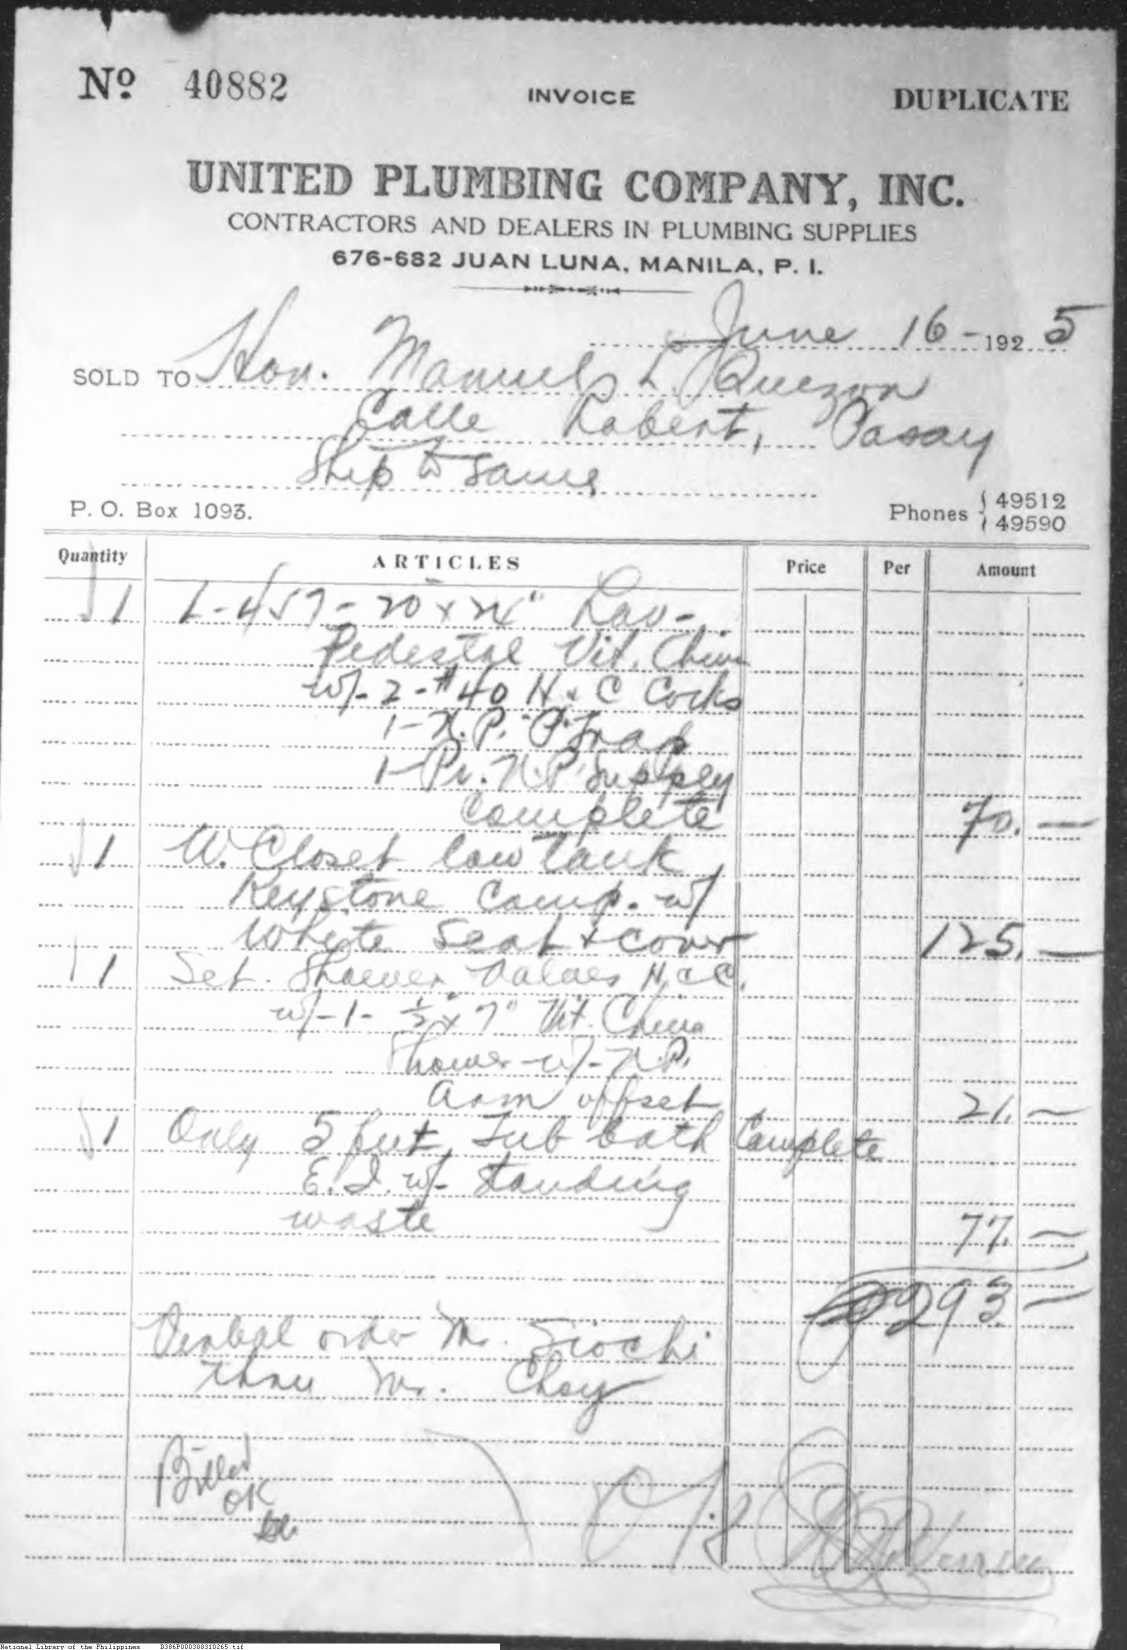 Nº 40882 INVOICE DUPLICATE
UNITED PLUMBING COMPANY, INC.
CONTRACTORS AND DEALERS IN PLUMBING SUPPLIES
676-682 JUAN LUNA, MANILA, P. I.
June 16- 192 5
SOLD TO Hon. Manuel L. Quezon
Calle Robert, Pasay
Ship to Same
P. O. Box 1093. Phones 49512
49590
Quantity ARTICLES Price Per Amount
1 L-457-20 x 24" Lav-
Pedestal Vit. China
w/- 2-#40 H & C Cocks
1-N.P. "P" Trap
1-Pr. N.P. Supply
Complete 70. —
1 W. Closet low tank
Keystone Comp. w/
White Seat & cover 125. —
1 Set Shower Valves H & C.
w/-1- ½ x 7" Vit. China
Shower w/- N.P.
arm offset 21. —
1 Only 5 feet Tub bath Complete
E.I. w/- Standing
waste 77. —
293. —
Verbal order Mr. Siochi
thru Mr. Choy
Billed
OK
National Library of the Philippines D386P000308310265.tif